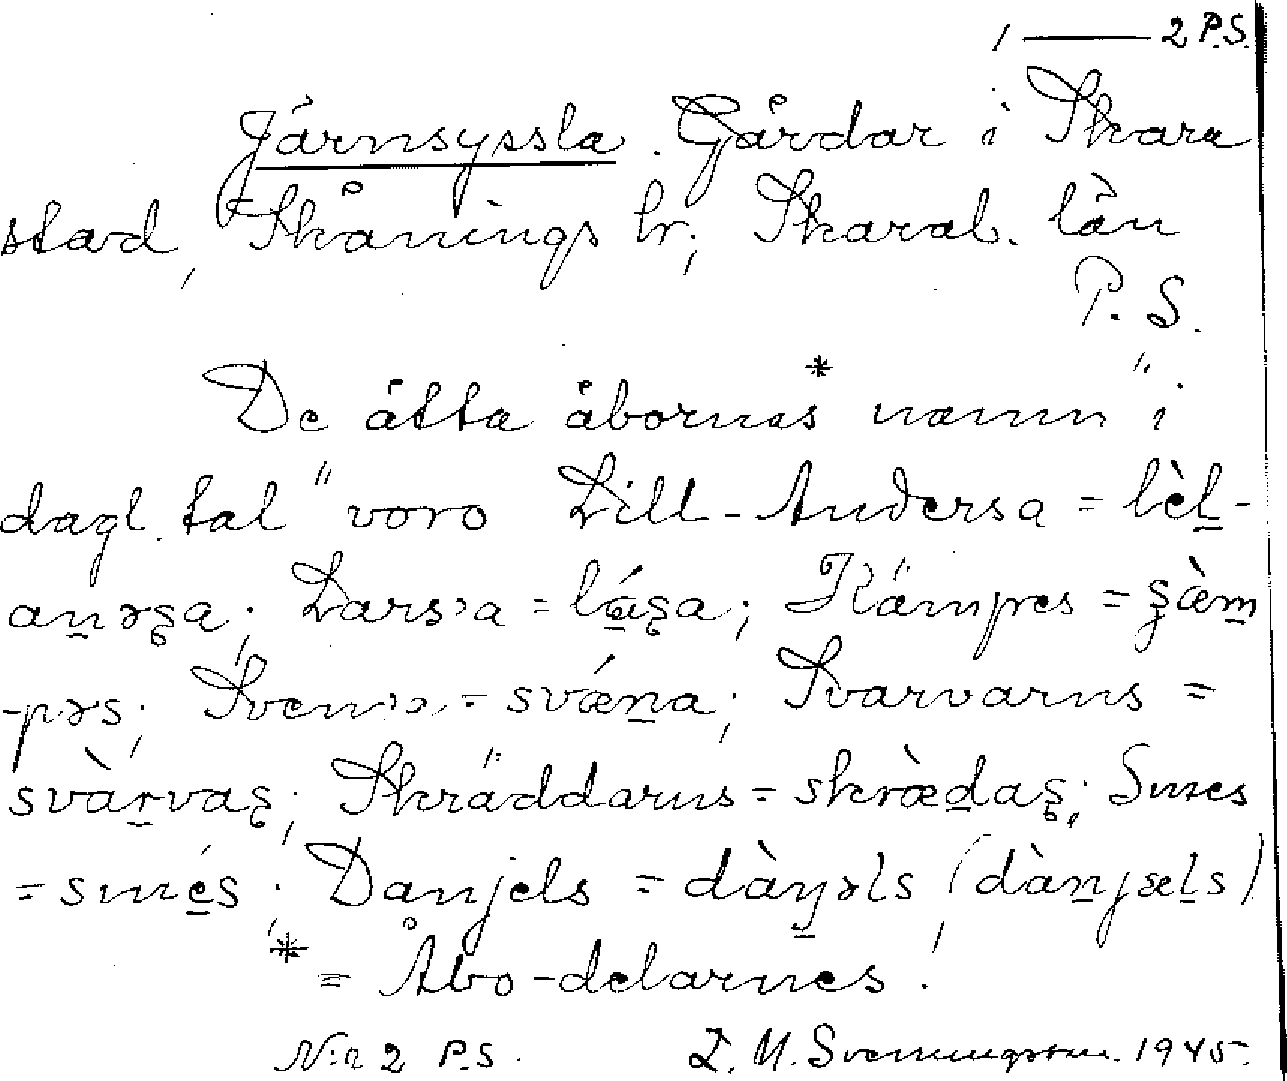 1 — 2 P.S.
Järnsyssla. Gårdar i Skara
stad, Skånings hr; Skarab. län
P. S.
De åtta åbornas* namn "i
dagl. tal" voro Lill-Andersa = lèl-
anəʂa; Larsa = láʂa; Kämpes = ʂæ̀m
-pəs; Svensa = svǽna; Svarvarns =
svàrvaʂ; Skräddarns = skræ̀daʂ; Smes
= smés; Danjels = dàŋəls (dànjæls)
* = Åbo-delarnes!
N:r 2 P.S. L. M. Svenningson. 1945.